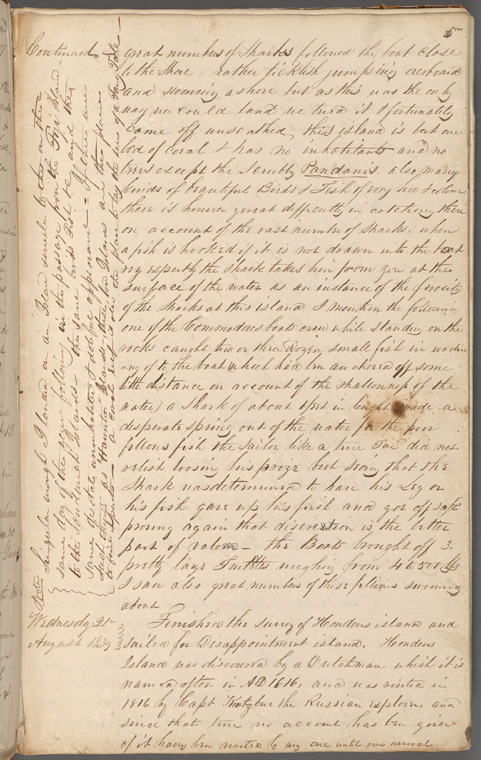 5
Continued
great numbers of Sharks followed the boat close
to the Shore Rather ticklish jumping overboard
and swimming ashore but as this was the only
way we could land we tried it & fortunately
came off unscathed, this island is but one
bed of coral & has no inhabitants and no
trees except the Scrubly Pandanis also many
kinds of beautiful Birds & Fish of very
there is however great difficulty in catching them
on account of the vast number of sharks; when
a fish is hooked, if it is not drawn into the boat
very expertly the shark takes him from you at the
surface of the water as an instance of the ferocity
of the sharks at this island I mention the following
one of the Commodores boat crew while standing on the
rocks caught two or three dozen small fish in wading
to the boat which had been anchored off some
little distance on account of the shallowness of the
water a shark of about feet in length made a
desperate spring out of the water for the poor
fellows fish the Sailor like a true Tar did not
relish loosing his prize but seeing that the
Shark was determined to have his Leg or
his fish gave up his first and got off safe
proving again that discretion is the better
part of valour — the Boats brought off 3
pretty large Turtles weighing from 4 to 500
I saw also great numbers of these fellows swiming
about
Wednesday 21st
August 1839
Finished the survey of Hondens island and
sailed for Disappointment island, Hondens
Island was discovered by a Dutchman which it is
named after in AD 1616, and was visited in
1816 by Capt Kotzbue the Russian explorer, and
since that time no account has been given
of it having been visited by any one until our arrival
Note Singular enough I landed on an Island similar to this on the
same day of the year following in the passage from the Fejii Island
to the Sandwich Islands — the same birds Fish &c and the
same desolate uninhabited appearance — If again were